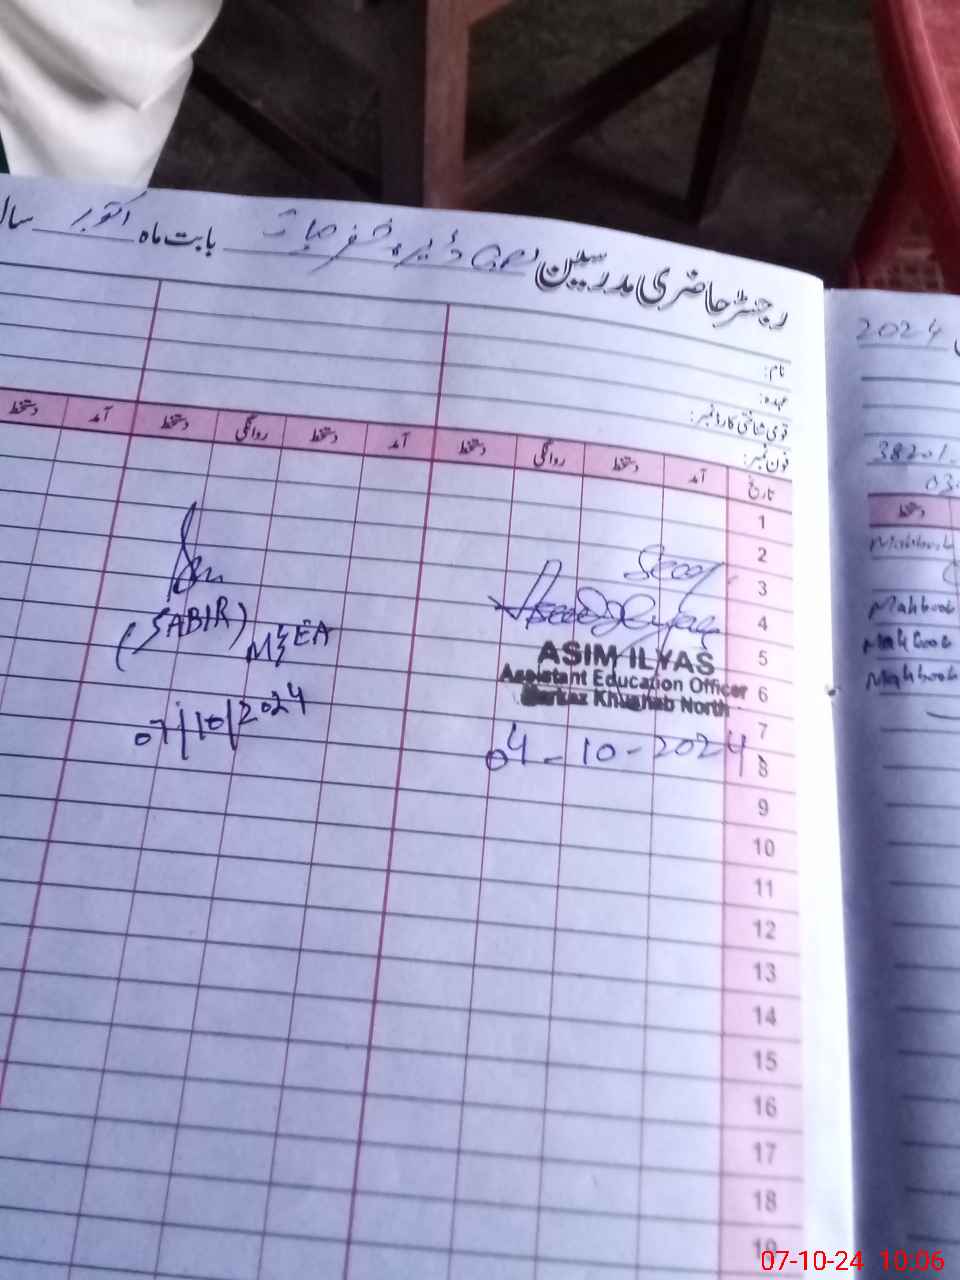 رجسٹر حاضری مدرسین GPS ڈیرہ بابت ماہ اکتوبر سال
2024
نام:
عہدہ:
قومی شناختی کارڈ نمبر:
فون نمبر:
38201
03
تاریخ آمد دستخط روانگی دستخط آمد دستخط روانگی دستخط آمد دستخط
دستخط
1
2
3
4
5
6
7
8
9
10
11
12
13
14
15
16
17
18
19
Seen
ASIM ILYAS
Assistant Education Officer
Markaz Khushab North
04-10-2024
(SABIR)
M&EA
07/10/2024
Mahboob
Mahboob
Mahboob
Mahboob
07-10-24 10:06